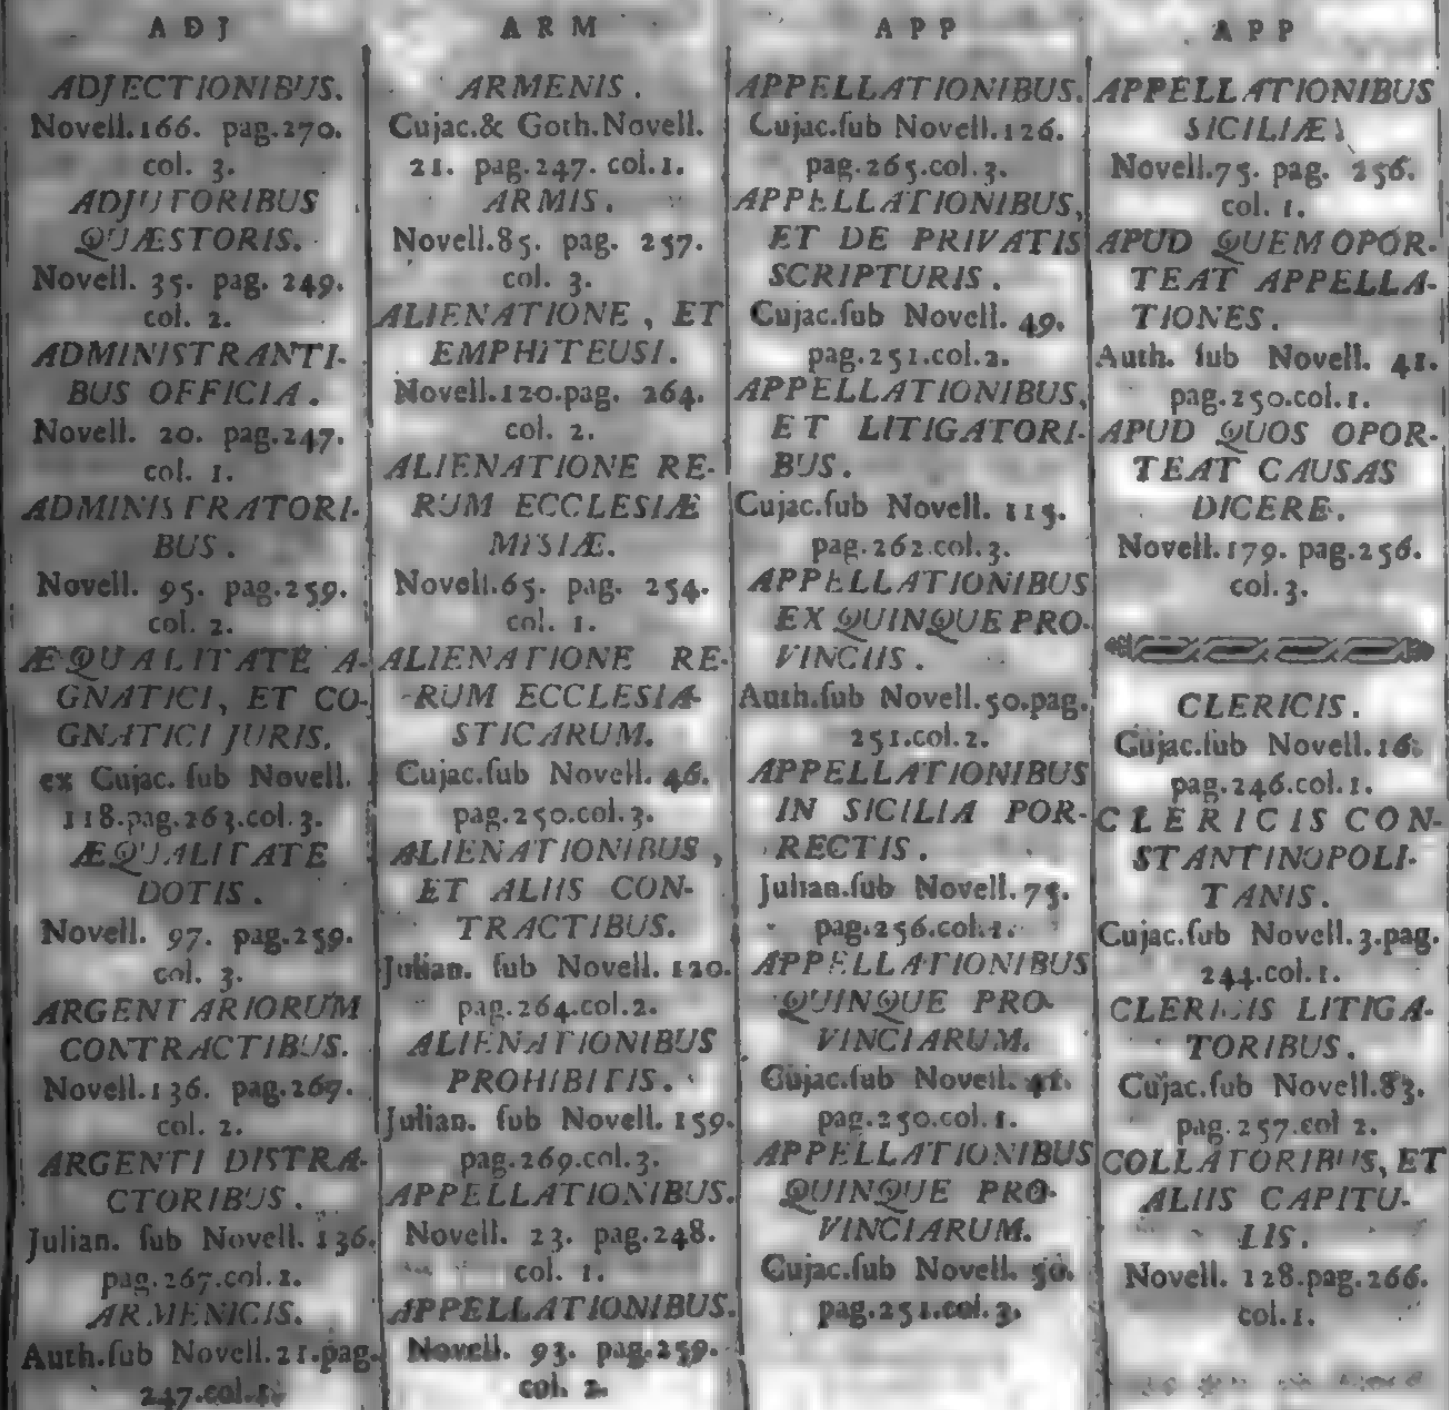 ADJ
ADJECTIONIBUS.
Novell.166. pag.270.
col. 3.
ADJUTORIBUS
QUÆSTORIS.
Novell. 35. pag. 249.
col. 2.
ADMINISTRANTI-
BUS OFFICIA.
Novell. 20. pag.247.
col. 1.
ADMINISTRATORI-
BUS.
Novell. 95. pag.259.
col. 2.
ÆQUALITATE A-
GNATICI, ET CO-
GNATICI JURIS.
ex Cujac. ſub Novell.
118.pag.263.col.3.
ÆQUALITATE
DOTIS.
Novell. 97. pag.259.
col. 3.
ARGENTARIORUM
CONTRACTIBUS.
Novell.136. pag.267.
col. 2.
ARGENTI DISTRA-
CTORIBUS.
Julian. ſub Novell. 136.
pag.267.col.2.
ARMENICIS.
Auth.ſub Novell.21.pag.
247.col.1.
ARM
ARMENIS.
Cujac.& Goth.Novell.
21. pag.247. col.1.
ARMIS.
Novell.85. pag. 257.
col. 3.
ALIENATIONE, ET
EMPHITEUSI.
Novell.120.pag. 264.
col. 2.
ALIENATIONE RE-
RUM ECCLESIÆ
MISIÆ.
Novell.65. pag. 254.
col. 1.
ALIENATIONE RE-
RUM ECCLESIA-
STICARUM.
Cujac.ſub Novell. 46.
pag.250.col.3.
ALIENATIONIBUS,
ET ALIIS CON-
TRACTIBUS.
Julian. ſub Novell. 120.
pag.264.col.2.
ALIENATIONIBUS
PROHIBITIS.
Julian. ſub Novell. 159.
pag.269.col.3.
APPELLATIONIBUS.
Novell. 23. pag.248.
col. 1.
APPELLATIONIBUS.
Novell. 93. pag.259.
col. 2.
APP
APPELLATIONIBUS.
Cujac.ſub Novell.126.
pag.265.col.3.
APPELLATIONIBUS,
ET DE PRIVATIS
SCRIPTURIS.
Cujac.ſub Novell. 49.
pag.251.col.2.
APPELLATIONIBUS,
ET LITIGATORI-
BUS.
Cujac.ſub Novell. 115.
pag.262.col.3.
APPELLATIONIBUS
EX QUINQUE PRO-
VINCIIS.
Auth.ſub Novell.50.pag.
251.col.2.
APPELLATIONIBUS
IN SICILIA POR-
RECTIS.
Julian.ſub Novell.75.
pag.256.col.1.
APPELLATIONIBUS
QUINQUE PRO-
VINCIARUM.
Cujac.ſub Novell. 41.
pag.250.col.1.
APPELLATIONIBUS
QUINQUE PRO-
VINCIARUM.
Cujac.ſub Novell. 50.
pag.251.col.3.
APP
APPELLATIONIBUS
SICILIÆ
Novell.75. pag. 256.
col. 1.
APUD QUEM OPOR-
TEAT APPELLA-
TIONES.
Auth. ſub Novell. 41.
pag.250.col.1.
APUD QUOS OPOR-
TEAT CAUSAS
DICERE.
Novell.179. pag.256.
col.3.
CLERICIS.
Cujac.ſub Novell.16.
pag.246.col.1.
CLERICIS CON-
STANTINOPOLI-
TANIS.
Cujac.ſub Novell.3.pag.
244.col.1.
CLERICIS LITIGA-
TORIBUS.
Cujac.ſub Novell.83.
pag.257.col 2.
COLLATORIBUS, ET
ALIIS CAPITU-
LIS.
Novell. 128.pag.266.
col.1.